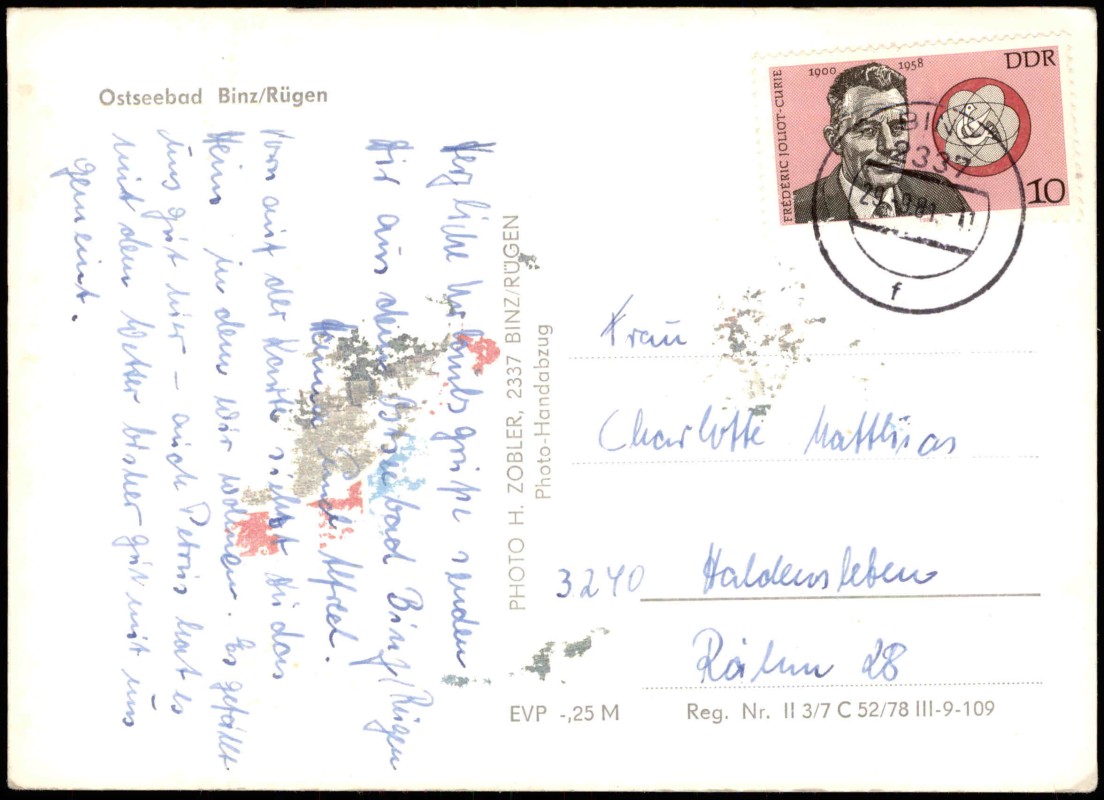 Ostseebad Binz/Rügen
Herzliche Urlaubsgrüße senden
Dir aus dem Ostseebad Binz/Rügen
und Alfred.
Vorn auf der Karte siehst Du das
Heim in dem wir wohnen. Es gefällt
uns gut hier – auch Petrus hat es
mit dem Wetter bisher gut mit uns
gemeint.
PHOTO H. ZOBLER, 2337 BINZ/RÜGEN
Photo-Handabzug
FRÉDÉRIC JOLIOT-CURIE
1900 1958
DDR
10
BINZ
2337
f
Frau
Charlotte Matthias
3240 Haldensleben
28
EVP -,25 M
Reg. Nr. II 3/7 C 52/78 III-9-109